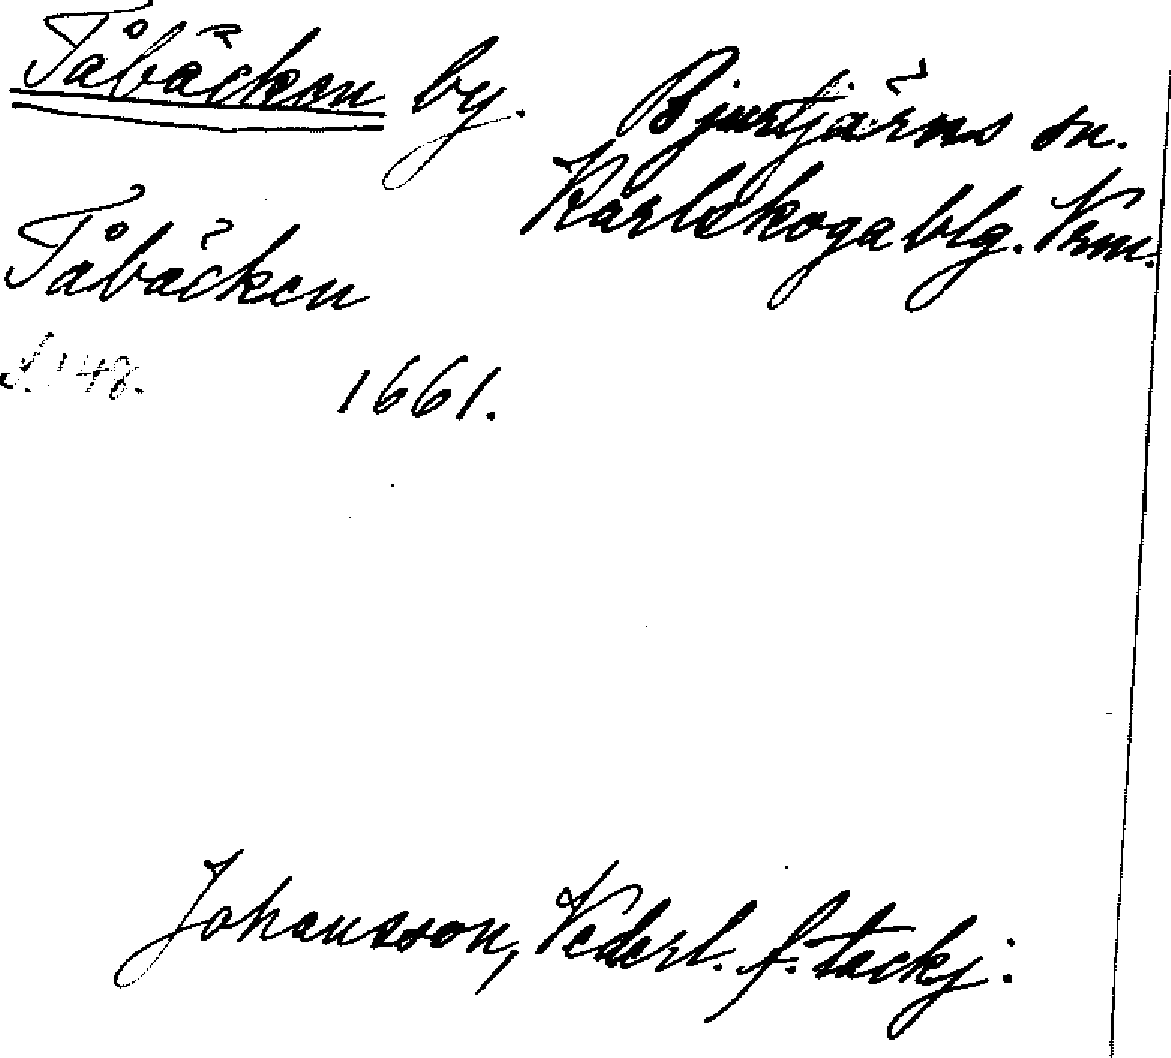 Tåbäcken by.
Bjurtjärns sn.
Karlskoga blg. Vrm.
Tåbäcken
S. 148.
1661.
Johansson, Vederl. f. tackj: